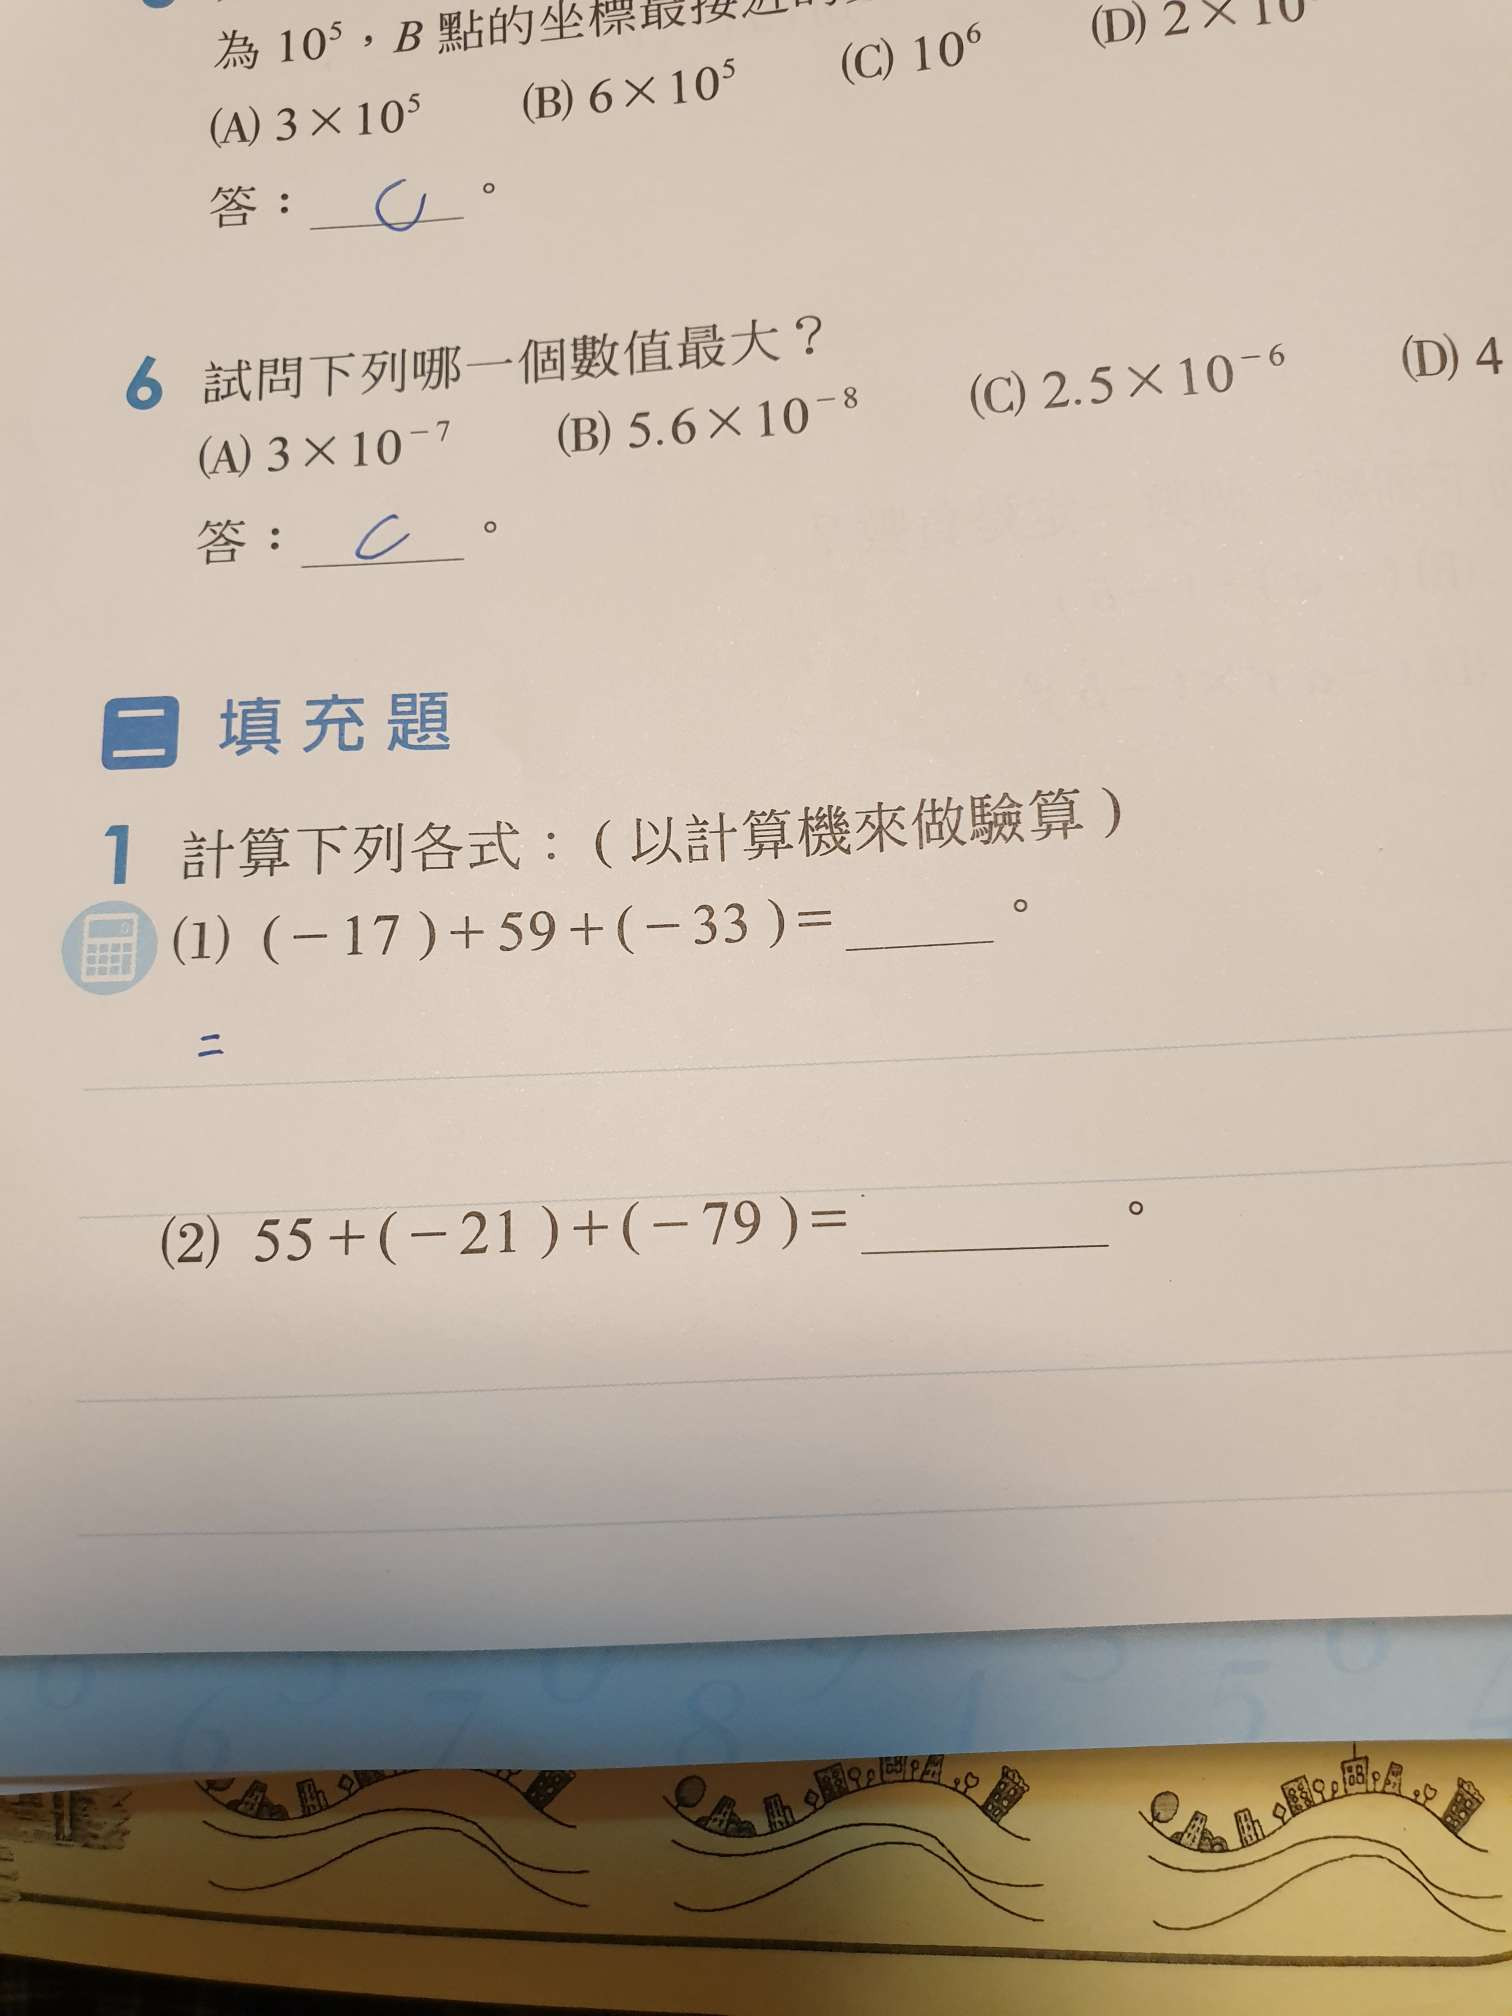 為 10⁵，B 點的坐標最接近
(A) 3×10⁵ (B) 6×10⁵ (C) 10⁶ (D) 2×10
答：C。
6 試問下列哪一個數值最大？
(A) 3×10⁻⁷ (B) 5.6×10⁻⁸ (C) 2.5×10⁻⁶ (D) 4
答：C。
二 填充題
1 計算下列各式：（以計算機來做驗算）
(1) (－17)＋59＋(－33)＝______。
=
(2) 55＋(－21)＋(－79)＝______。